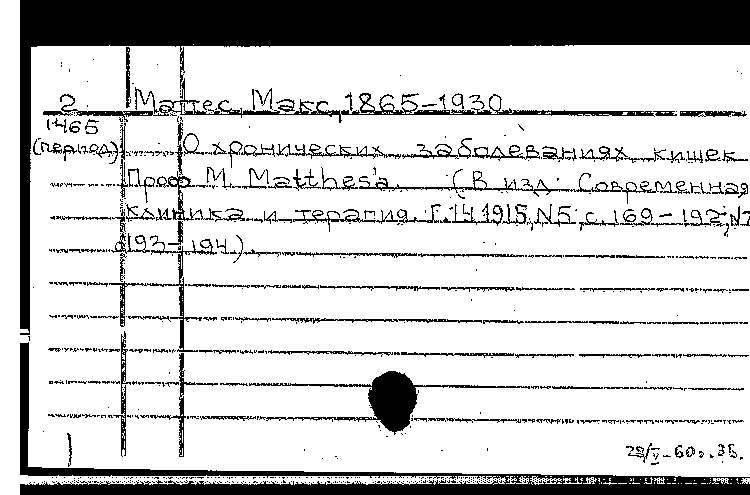 2 Маттес, Макс, 1865-1930.
1465
(период)
О хронических заболеваниях кишек
Проф M. Matthes'a. (В изд. Современная
клиника и терапия. Г.14 1915, N5, с. 169-192; N7
с193-194.).
29/V-60г. ЗБ.